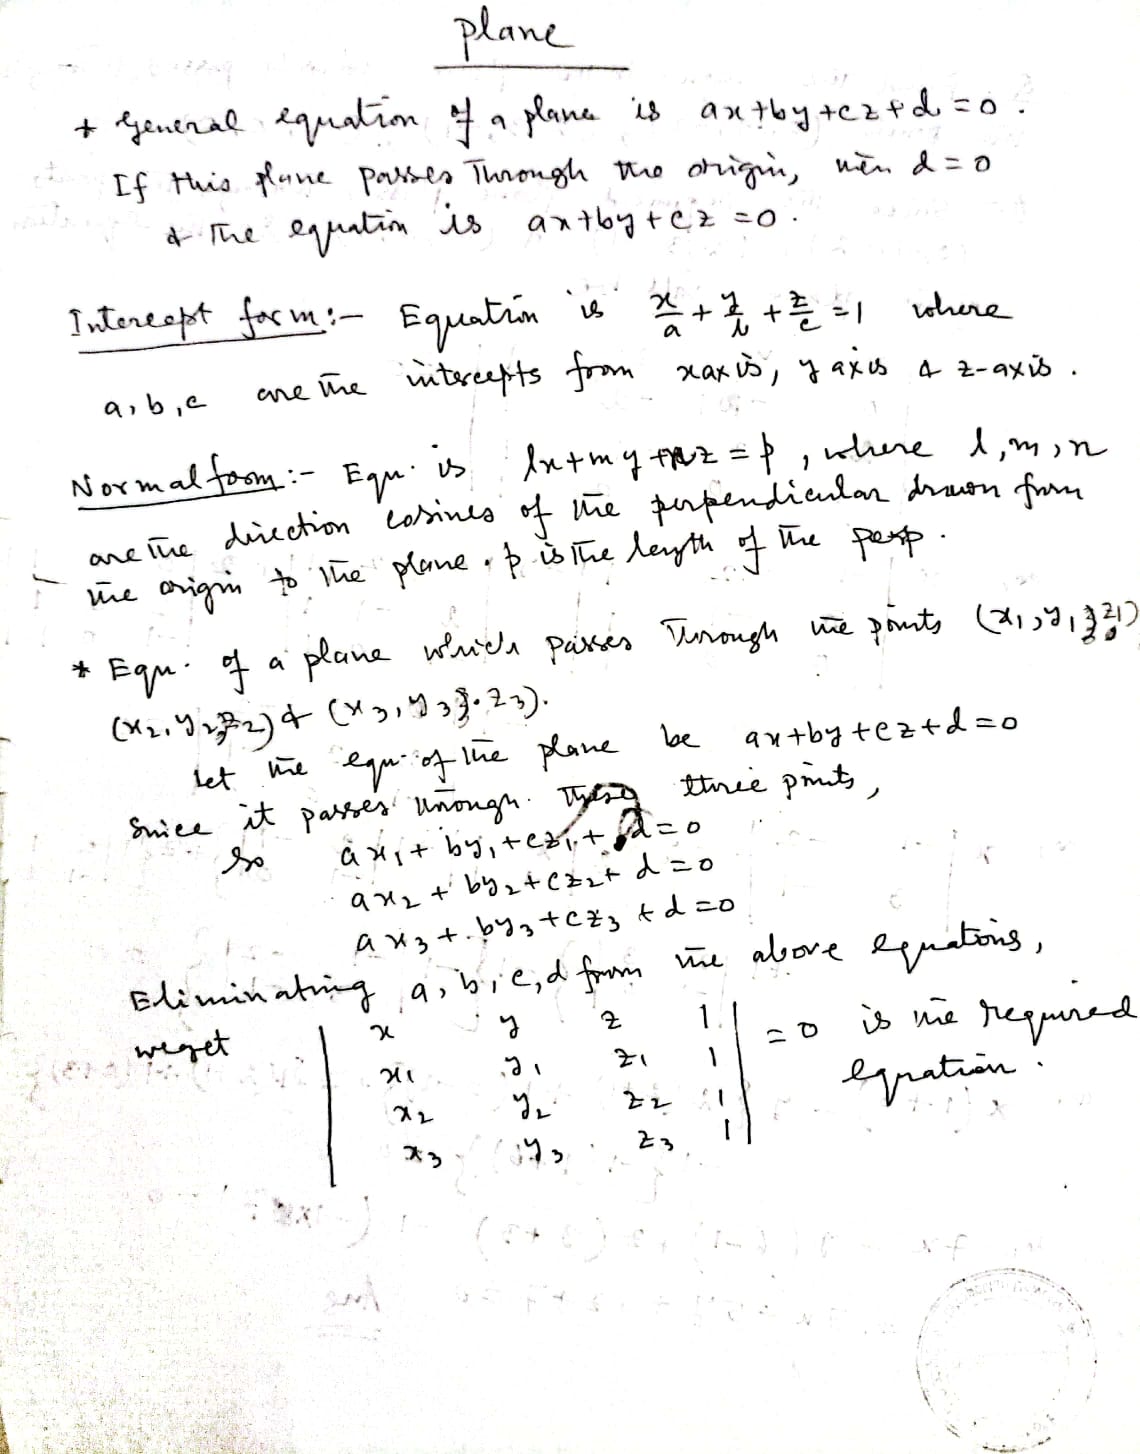 plane
* General equation of a plane is ax+by+cz+d=0.
If this plane passes through the origin, then d=0
& The equation is ax+by+cz=0.
Intercept form:- Equation is x/a + y/b + z/c = 1 where
a, b, c are the intercepts from xaxis, y axis & z-axis.
Normal form:- Equn. is lx+my+nz=p, where l, m, n
are the direction cosines of the perpendicular drawn from
the origin to the plane. p is the length of the perp.
* Equn. of a plane which passes through the points (x₁, y₁, z₁)
(x₂, y₂, z₂) & (x₃, y₃, z₃).
Let the equn. of the plane be ax+by+cz+d=0
Since it passes through these three points,
So ax₁+by₁+cz₁+d=0
ax₂+by₂+cz₂+d=0
ax₃+by₃+cz₃+d=0
Eliminating a, b, c, d from the above equations,
we get | x y z 1 | = 0 is the required
x₁ y₁ z₁ 1 equation.
x₂ y₂ z₂ 1
x₃ y₃ z₃ 1